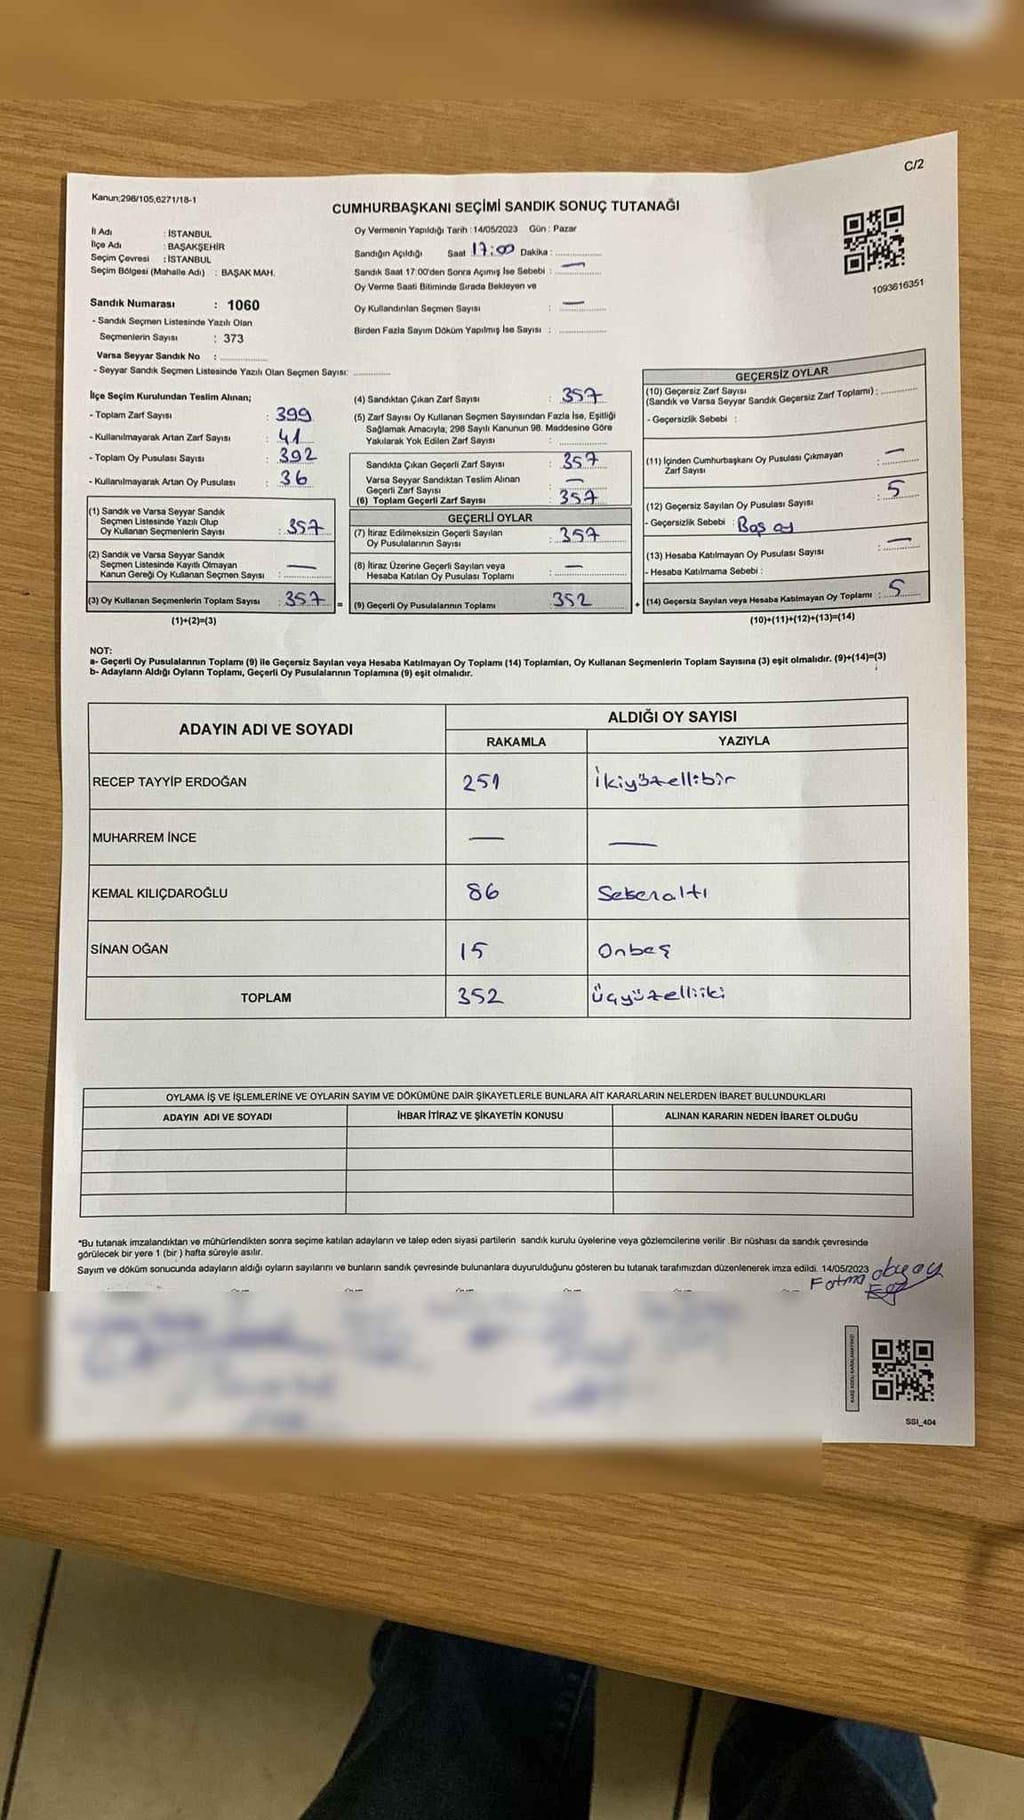 C/2
Kanun;298/105,6271/18-1
CUMHURBAŞKANI SEÇİMİ SANDIK SONUÇ TUTANAĞI
İl Adı : İSTANBUL
İlçe Adı : BAŞAKŞEHİR
Seçim Çevresi : İSTANBUL
Seçim Bölgesi (Mahalle Adı) : BAŞAK MAH.
Sandık Numarası : 1060
- Sandık Seçmen Listesinde Yazılı Olan
Seçmenlerin Sayısı : 373
Varsa Seyyar Sandık No :
- Seyyar Sandık Seçmen Listesinde Yazılı Olan Seçmen Sayısı:
Oy Vermenin Yapıldığı Tarih : 14/05/2023 Gün : Pazar
Sandığın Açıldığı Saat 17:00 Dakika :
Sandık Saat 17:00'den Sonra Açımış İse Sebebi : —
Oy Verme Saati Bitiminde Sırada Bekleyen ve
Oy Kullandırılan Seçmen Sayısı : —
Birden Fazla Sayım Döküm Yapılmış İse Sayısı :
1093616351
İlçe Seçim Kurulundan Teslim Alınan;
- Toplam Zarf Sayısı : 399
- Kullanılmayarak Artan Zarf Sayısı : 41
- Toplam Oy Pusulası Sayısı : 392
- Kullanılmayarak Artan Oy Pusulası : 36
(1) Sandık ve Varsa Seyyar Sandık
Seçmen Listesinde Yazılı Olup
Oy Kullanan Seçmenlerin Sayısı : 357
(2) Sandık ve Varsa Seyyar Sandık
Seçmen Listesinde Kayıtlı Olmayan
Kanun Gereği Oy Kullanan Seçmen Sayısı : —
(3) Oy Kullanan Seçmenlerin Toplam Sayısı : 357 =
(1)+(2)=(3)
(4) Sandıktan Çıkan Zarf Sayısı : 357
(5) Zarf Sayısı Oy Kullanan Seçmen Sayısından Fazla İse, Eşitliği
Sağlamak Amacıyla; 298 Sayılı Kanunun 98. Maddesine Göre
Yakılarak Yok Edilen Zarf Sayısı :
Sandıkta Çıkan Geçerli Zarf Sayısı : 357
Varsa Seyyar Sandıktan Teslim Alınan
Geçerli Zarf Sayısı : —
(6) Toplam Geçerli Zarf Sayısı : 357
GEÇERLİ OYLAR
(7) İtiraz Edilmeksizin Geçerli Sayılan
Oy Pusulalarının Sayısı : 357
(8) İtiraz Üzerine Geçerli Sayılan veya
Hesaba Katılan Oy Pusulası Toplamı : —
(9) Geçerli Oy Pusulalarının Toplamı : 352 +
GEÇERSİZ OYLAR
(10) Geçersiz Zarf Sayısı
(Sandık ve Varsa Seyyar Sandık Geçersiz Zarf Toplamı) :
- Geçersizlik Sebebi :
(11) İçinden Cumhurbaşkanı Oy Pusulası Çıkmayan
Zarf Sayısı : —
(12) Geçersiz Sayılan Oy Pusulası Sayısı : 5
- Geçersizlik Sebebi : Boş oy
(13) Hesaba Katılmayan Oy Pusulası Sayısı : —
- Hesaba Katılmama Sebebi :
(14) Geçersiz Sayılan veya Hesaba Katılmayan Oy Toplamı : 5
(10)+(11)+(12)+(13)=(14)
NOT:
a- Geçerli Oy Pusulalarının Toplamı (9) ile Geçersiz Sayılan veya Hesaba Katılmayan Oy Toplamı (14) Toplamları, Oy Kullanan Seçmenlerin Toplam Sayısına (3) eşit olmalıdır. (9)+(14)=(3)
b- Adayların Aldığı Oyların Toplamı, Geçerli Oy Pusulalarının Toplamına (9) eşit olmalıdır.
ADAYIN ADI VE SOYADI
ALDIĞI OY SAYISI
RAKAMLA YAZIYLA
RECEP TAYYİP ERDOĞAN 251 İkiyüzellibir
MUHARREM İNCE — —
KEMAL KILIÇDAROĞLU 86 Seksenaltı
SİNAN OĞAN 15 Onbeş
TOPLAM 352 Üçyüzelliiki
OYLAMA İŞ VE İŞLEMLERİNE VE OYLARIN SAYIM VE DÖKÜMÜNE DAİR ŞİKAYETLERLE BUNLARA AİT KARARLARIN NELERDEN İBARET BULUNDUKLARI
ADAYIN ADI VE SOYADI İHBAR İTİRAZ VE ŞİKAYETİN KONUSU ALINAN KARARIN NEDEN İBARET OLDUĞU
*Bu tutanak imzalandıktan ve mühürlendikten sonra seçime katılan adayların ve talep eden siyasi partilerin sandık kurulu üyelerine veya gözlemcilerine verilir .Bir nüshası da sandık çevresinde
görülecek bir yere 1 (bir) hafta süreyle asılır.
Sayım ve döküm sonucunda adayların aldığı oyların sayılarını ve bunların sandık çevresinde bulunanlara duyurulduğunu gösteren bu tutanak tarafımızdan düzenlenerek imza edildi. 14/05/2023
Fatma
SSI_404